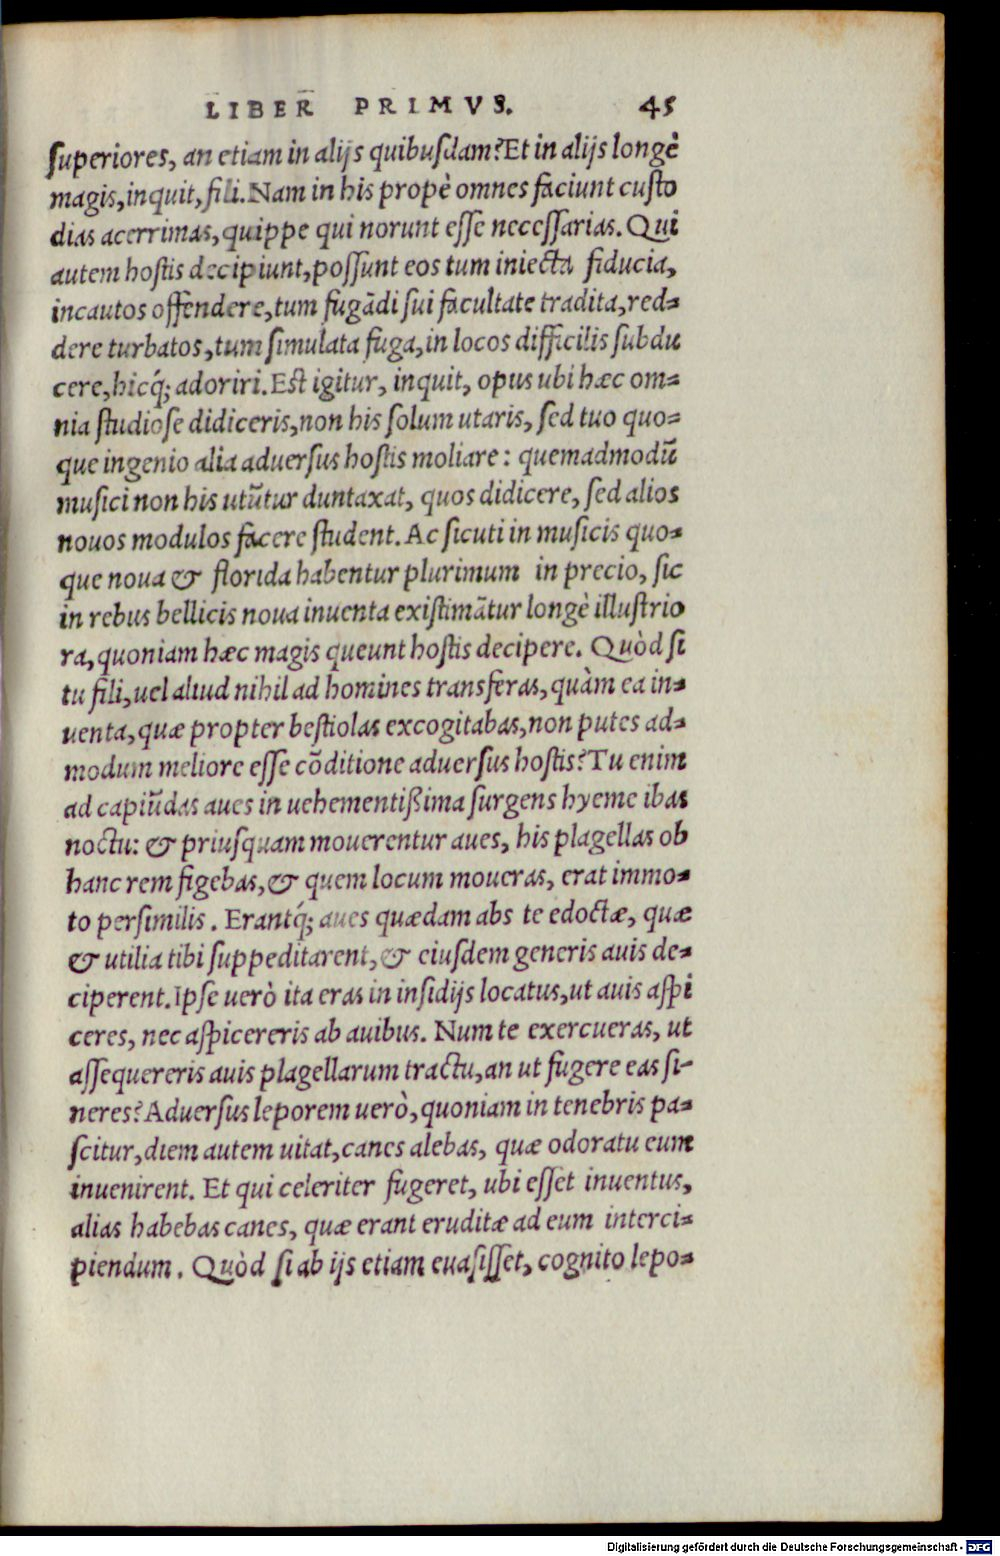 LIBER PRIMVS. 45
superiores, an etiam in alijs quibusdam? Et in alijs longè
magis, inquit, fili. Nam in his propè omnes faciunt custo
dias acerrimas, quippe qui norunt esse necessarias. Qui
autem hostis decipiunt, possunt eos tum iniecta fiducia,
incautos offendere, tum fugādi sui facultate tradita, red-
dere turbatos, tum simulata fuga, in locos difficilis subdu
cere, hicq́; adoriri. Est igitur, inquit, opus ubi hæc om-
nia studiose didiceris, non his solum utaris, sed tuo quo-
que ingenio alia aduersus hostis moliare: quemadmodū
musici non his utūtur duntaxat, quos didicere, sed alios
nouos modulos facere student. Ac sicuti in musicis quo-
que noua & florida habentur plurimum in precio, sic
in rebus bellicis noua inuenta existimātur longè illustrio
ra, quoniam hæc magis queunt hostis decipere. Quòd si
tu fili, uel aliud nihil ad homines transferas, quàm ea in-
uenta, quæ propter bestiolas excogitabas, non putes ad-
modum meliore esse cōditione aduersus hostis? Tu enim
ad capiūdas aues in uehementißima surgens hyeme ibas
noctu: & priusquam mouerentur aues, his plagellas ob
hanc rem figebas, & quem locum moueras, erat immo-
to persimilis. Erantq́; aues quædam abs te edoctæ, quæ
& utilia tibi suppeditarent, & eiusdem generis auis de-
ciperent. Ipse uerò ita eras in insidijs locatus, ut auis aspi
ceres, nec aspicereris ab auibus. Num te exercueras, ut
assequereris auis plagellarum tractu, an ut fugere eas si-
neres? Aduersus leporem uerò, quoniam in tenebris pa-
scitur, diem autem uitat, canes alebas, quæ odoratu eum
inuenirent. Et qui celeriter fugeret, ubi esset inuentus,
alias habebas canes, quæ erant eruditæ ad eum interci-
piendum. Quòd si ab ijs etiam euasisset, cognito lepo-
Digitalisierung gefördert durch die Deutsche Forschungsgemeinschaft - DFG